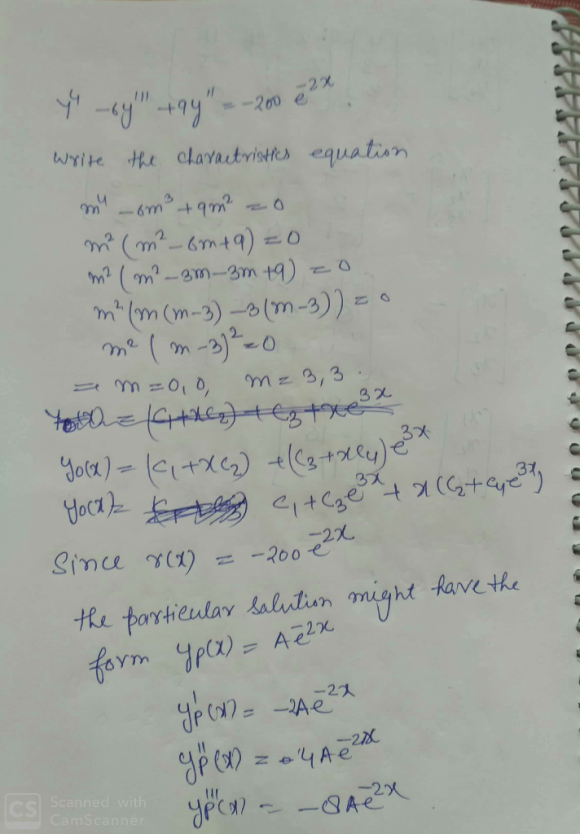 y⁴ -6y''' +9y'' = -200 e^-2x.
write the charactristics equation
m⁴ -6m³ +9m² = 0
m² (m² -6m+9) = 0
m² (m² -3m-3m+9) = 0
m² (m(m-3) -3(m-3)) = 0
m² (m-3)² = 0
⇒ m=0,0, m=3,3.
= (c₁+xc₂) + c₃ + xe^3x
y₀(x) = (c₁+xc₂) +(c₃+xc₄) e^3x
y₀(x) = c₁+c₃e^3x + x(c₂+c₄e^3x)
Since r(x) = -200 e^-2x
the particular salution might have the
form yp(x) = Ae^-2x
y'p(x) = -2Ae^-2x
y''p(x) = 4Ae^-2x
y'''p(x) = -8Ae^-2x
CS Scanned with
CamScanner